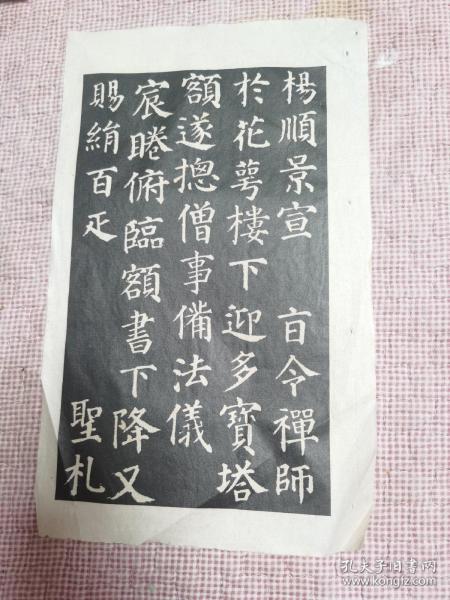 楊順景宣 旨令禪師
於花萼樓下迎多寶塔
額遂摠僧事備法儀
宸睠俯臨額書下降又
賜絹百疋 聖札
孔夫子旧书网
www.kongfz.com